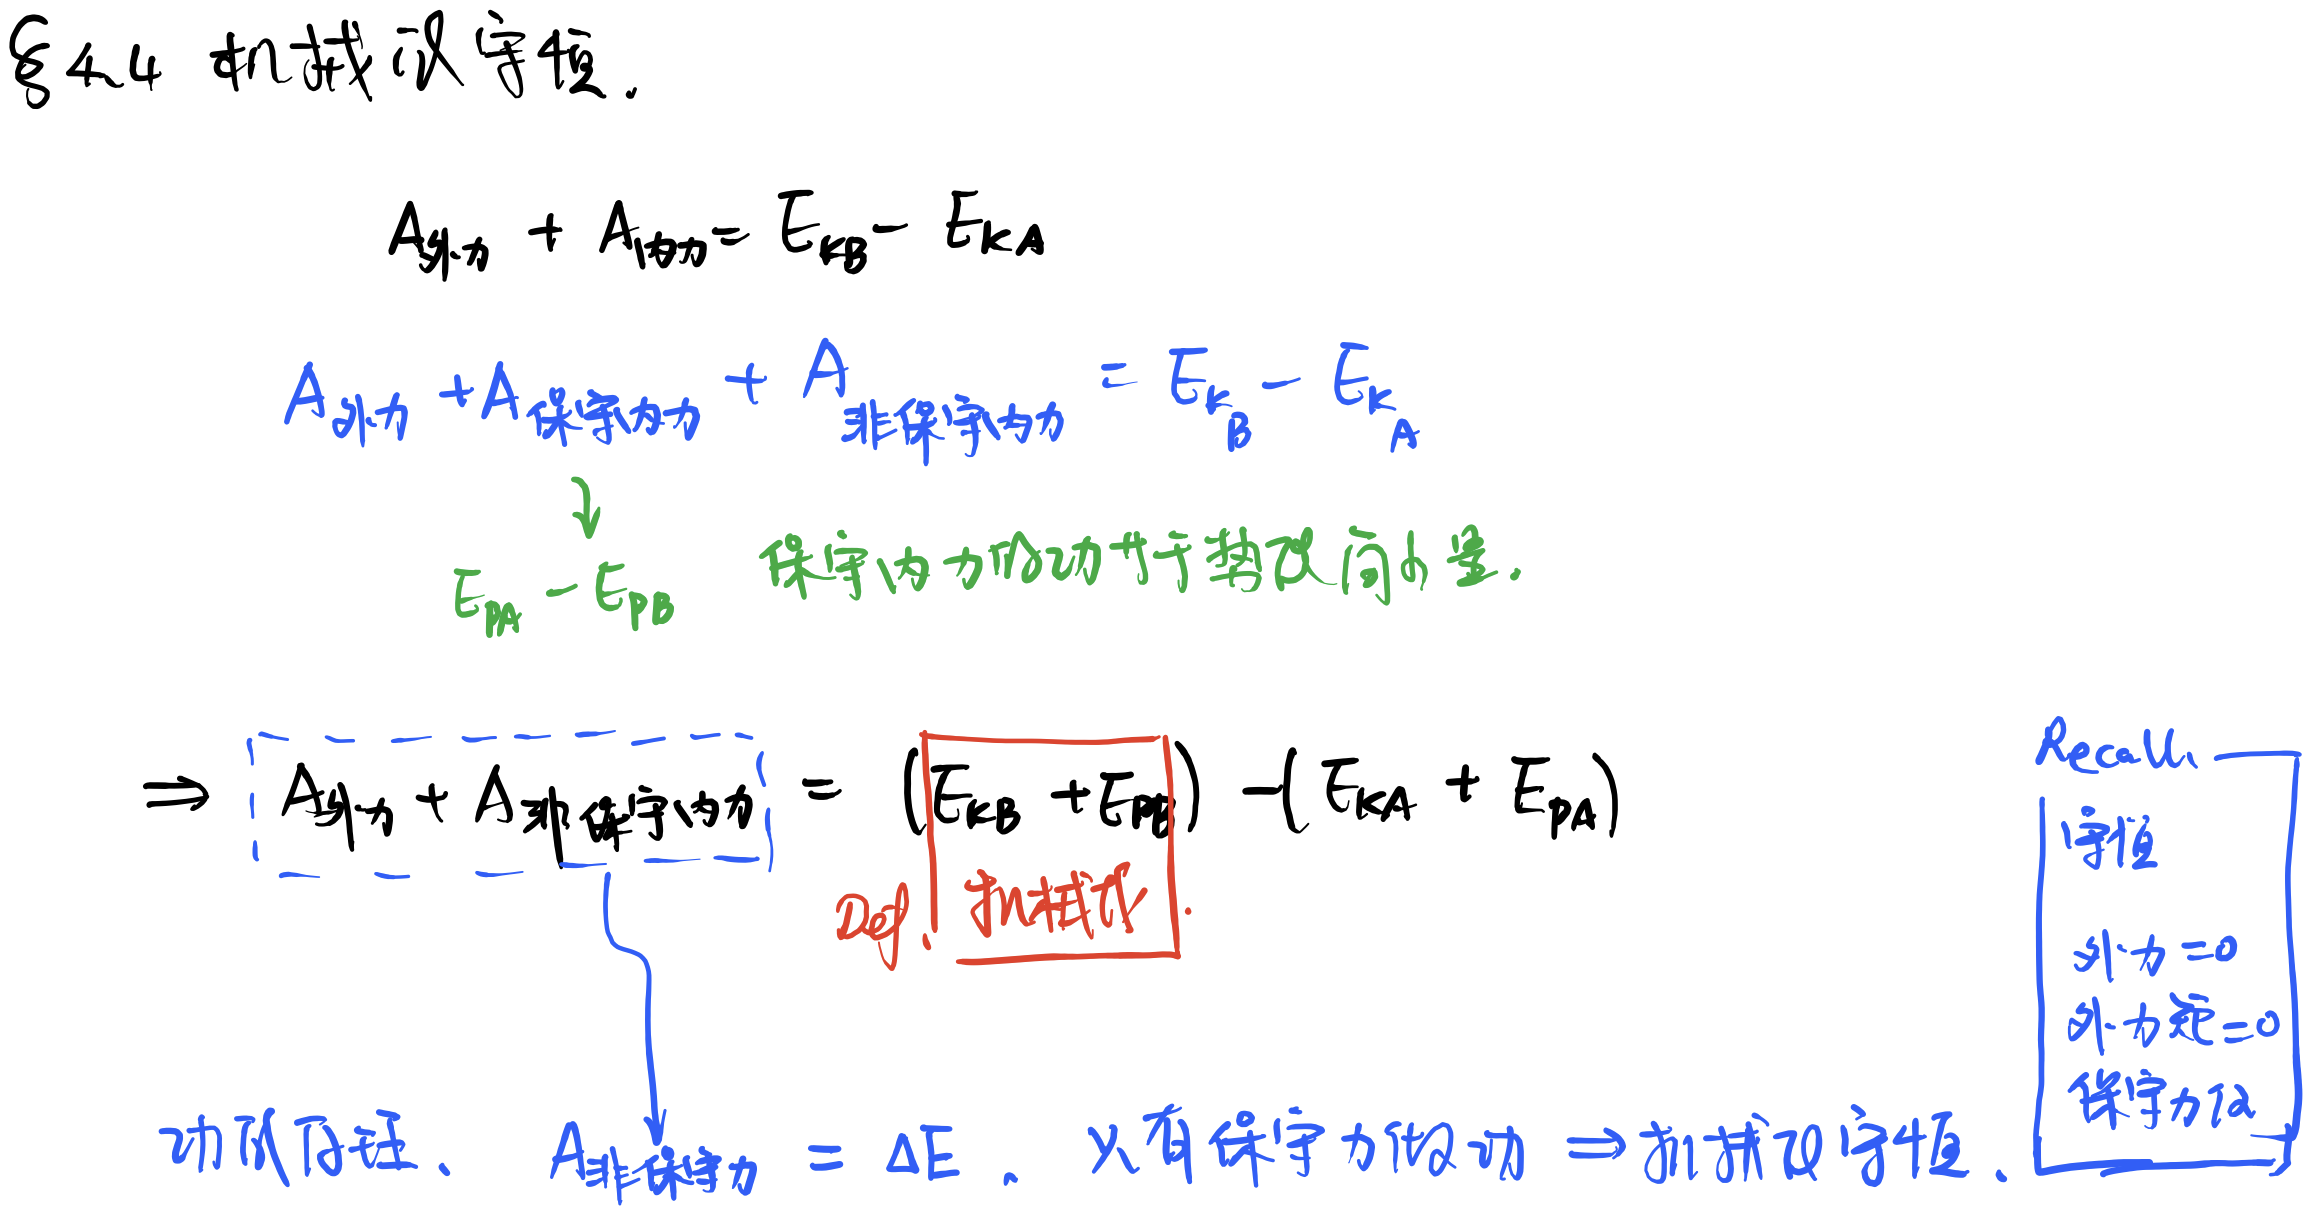 §4.4 机械能守恒.
A外力 + A内力 = EKB - EKA
A外力 + A保守内力 + A非保守内力 = EKB - EKA
↓
EPA - EPB 保守内力做功等于势能减少量.
⇒ A外力 + A非保守内力 = (EKB + EPB) - (EKA + EPA)
Def. 机械能.
功能原理. A非保守力 = ΔE. 只有保守力做功 ⇒ 机械能守恒.
Recall.
守恒
外力=0
外力矩=0
保守力做